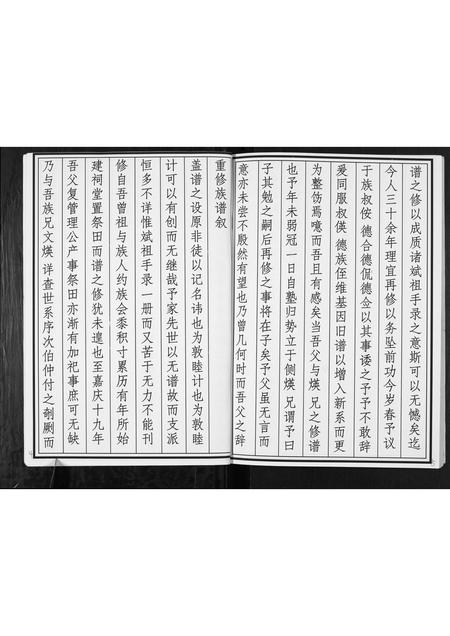 谱之修以成质诸斌祖手录之意斯可以无憾矣迄
今人三十余年理宜再修以务坠前功今岁春予议
于族叔侒 德合德侃德佥以其事诿之予予不敢辞
爰同服叔偀 德族侄维基因旧谱以增入新系而更
为整饬焉噫而吾且有感矣当吾父与煐 兄之修谱
也予年未弱冠一日自塾归势立于侧煐 兄谓予曰
子其勉之嗣后再修之事将在子矣予父虽无言而
意亦未尝不殷然有望也乃曾几何时而吾父之辞
重修族谱叙
盖谱之设原非徒以记名讳也为敦睦计也为敦睦
计可以有创而无继哉予家先世以无谱故而支派
恒多不详惟斌祖手录一册而又苦于无力不能刊
修自吾曾祖与族人约族会黍积寸累历有年所始
建祠堂置祭田而谱之修犹未遑也至嘉庆十九年
吾父复管理公产事祭田亦渐有加祀事庶可无缺
乃与吾族兄文煐 详查世系序次伯仲付之剞劂而